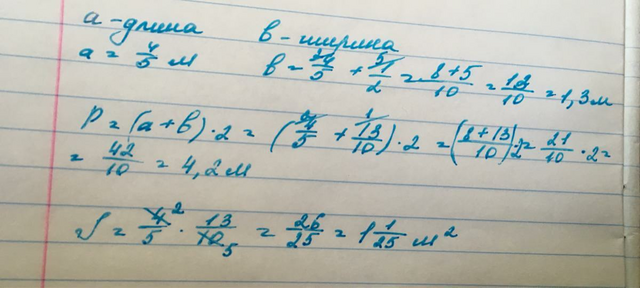 а - длина в - ширина
а = 4/5 м в = 4/5 + 1/2 = 8+5/10 = 13/10 = 1,3 м
P = (а + в) · 2 = (4/5 + 13/10) · 2 = (8+13/10) · 2 = 21/10 · 2 =
= 42/10 = 4,2 м
S = 4/5 · 13/10 = 26/25 = 1 1/25 м²